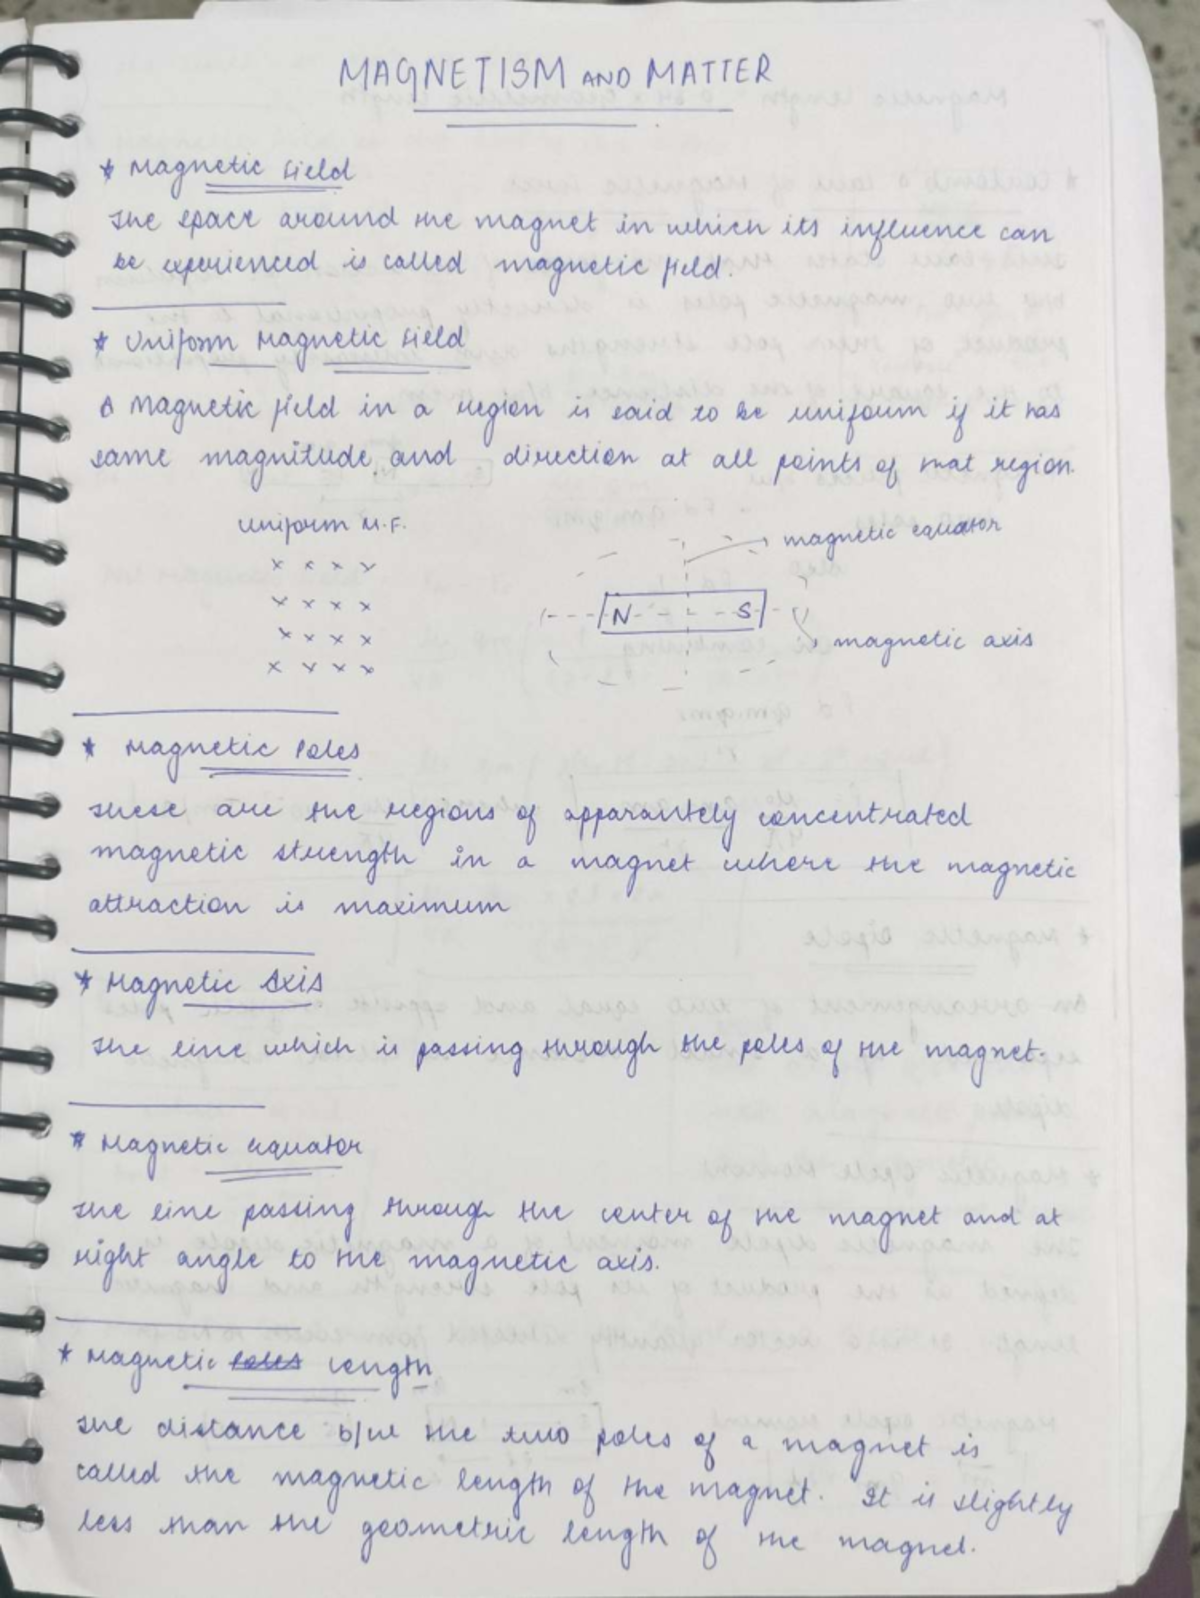 MAGNETISM AND MATTER
* Magnetic Field
The space around the magnet in which its influence can
be experienced is called magnetic field.
* Uniform Magnetic Field
A Magnetic field in a region is said to be uniform if it has
same magnitude and direction at all points of that region.
Uniform M.F.
x x x x
x x x x
x x x x
x x x x
magnetic equator
N S
magnetic axis
* Magnetic Poles
These are the regions of apparantely concentrated
magnetic strength in a magnet where the magnetic
attraction is maximum
* Magnetic Axis
The line which is passing through the poles of the magnet.
* Magnetic equator
The line passing through the center of the magnet and at
right angle to the magnetic axis.
* Magnetic Poles Length
The distance b/w the two poles of a magnet is
called the magnetic length of the magnet. It is slightly
less than the geometric length of the magnet.